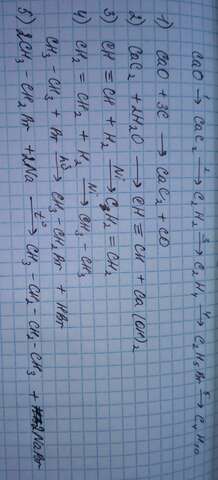 CaO → CaC₂ →² C₂H₂ →³ C₂H₄ →⁴ C₂H₅Br →⁵ C₄H₁₀
1) CaO + 3C → CaC₂ + CO
2) CaC₂ + 2H₂O → CH ≡ CH + Ca(OH)₂
3) CH ≡ CH + H₂ →Ni CH₂ = CH₂
4) CH₂ = CH₂ + H₂ →Ni CH₃ - CH₃
CH₃ - CH₃ + Br →hν CH₃ - CH₂Br + HBr
5) 2CH₃ - CH₂Br + 2Na →t° CH₃ - CH₂ - CH₂ - CH₃ + 2NaBr